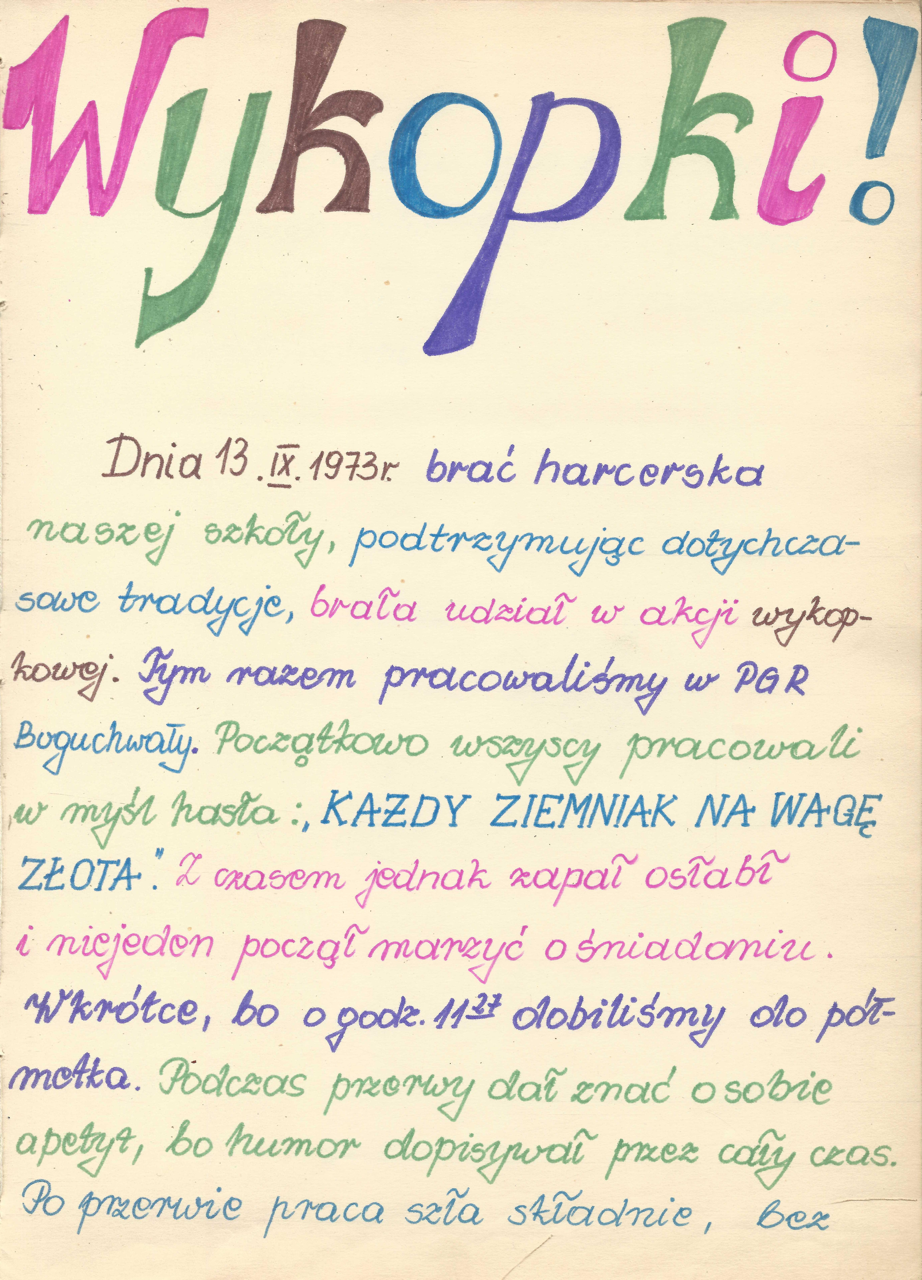 Wykopki!
Dnia 13.IX.1973r. brać harcerska
naszej szkoły, podtrzymując dotychcza-
sowe tradycje, brała udział w akcji wykop-
kowej. Tym razem pracowaliśmy w PGR
Boguchwały. Początkowo wszyscy pracowali
w myśl hasła :„KAŻDY ZIEMNIAK NA WAGĘ
ZŁOTA". Z czasem jednak zapał osłabł
i niejeden począł marzyć o śniadaniu.
Wkrótce, bo o godz. 11²⁷ dobiliśmy do pół-
metka. Podczas przerwy dał znać o sobie
apetyt, bo humor dopisywał przez cały czas.
Po przerwie praca szła składnie, bez